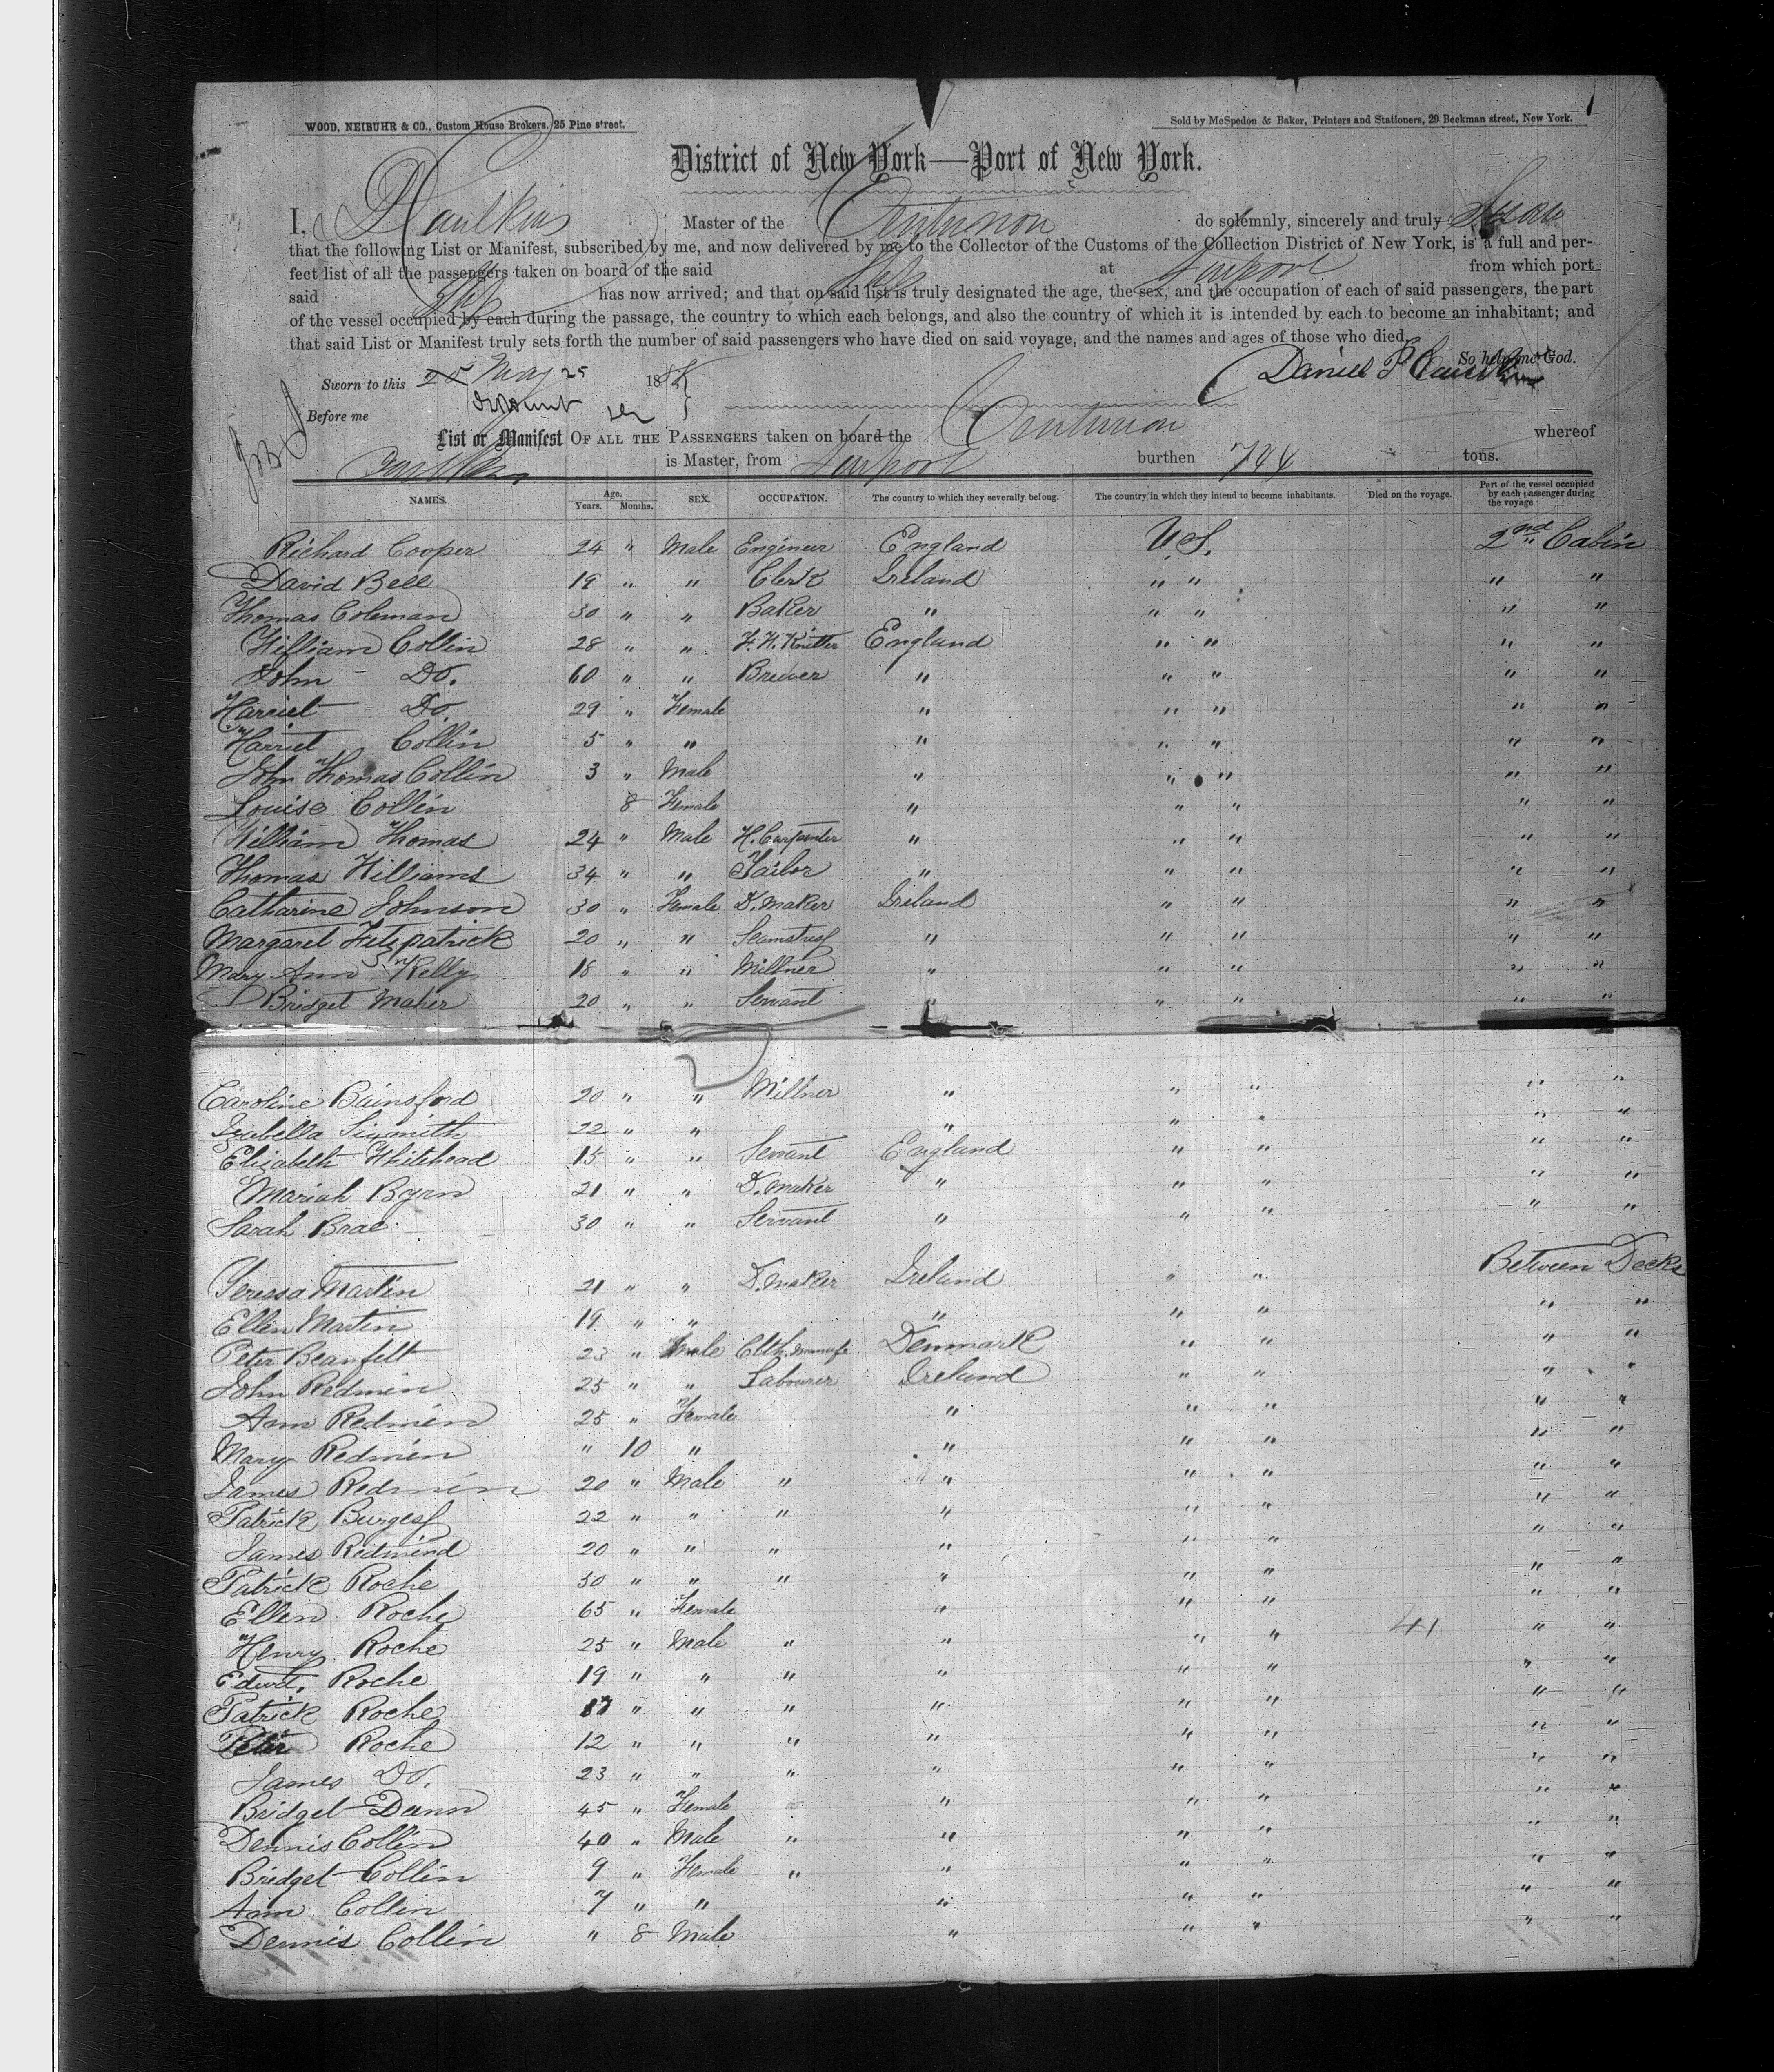 WOOD, NEIBUHR & CO., Custom House Brokers, 25 Pine street.
Sold by McSpedon & Baker, Printers and Stationers, 29 Beekman street, New York.
District of New York—Port of New York.
I, Master of the Centurion do solemnly, sincerely and truly Swear
that the following List or Manifest, subscribed by me, and now delivered by me to the Collector of the Customs of the Collection District of New York, is a full and per-
fect list of all the passengers taken on board of the said Ship at Liverpool from which port
said Ship has now arrived; and that on said list is truly designated the age, the sex, and the occupation of each of said passengers, the part
of the vessel occupied by each during the passage, the country to which each belongs, and also the country of which it is intended by each to become an inhabitant; and
that said List or Manifest truly sets forth the number of said passengers who have died on said voyage, and the names and ages of those who died.
So help me God.
Sworn to this May 25 18
Daniel
Before me
List or Manifest OF ALL THE PASSENGERS taken on board the Centurion whereof
is Master, from Liverpool burthen 744 tons.
NAMES. Age. Years. Months. SEX. OCCUPATION. The country to which they severally belong. The country in which they intend to become inhabitants. Died on the voyage. Part of the vessel occupied by each passenger during the voyage
Richard Cooper 24 " Male Engineer England U.S. 2nd Cabin
David Bell 19 " " Clerk Ireland " " " "
Thomas Coleman 30 " " Baker " " " " "
William Collin 28 " " F.W. Knitter England " " " "
John Do. 60 " " Brewer " " " " "
Harriet Do. 29 " Female " " " " "
Harriet Collin 5 " " " " " " "
John Thomas Collin 3 " Male " " " " "
Louisa Collin 8 Female " " " " "
William Thomas 24 " Male H. Carpenter " " " " "
Thomas Williams 34 " " Tailor " " " " "
Catharine Johnson 30 " Female D. Maker Ireland " " " "
Margaret Fitzpatrick 20 " " Seamstress " " " " "
Mary Ann Kelly 18 " " Millner " " " " "
Bridget Maher 20 " " Servant " " " " "
Caroline Bainsford 20 " " Millner " " " " "
Izabella Sixmith 22 " " " " " " "
Elizabeth Whitehead 15 " " Servant England " " " "
Mariah Byrn 21 " " D. Maker " " " " "
Sarah Brae 30 " " Servant " " " " "
Teressa Martin 21 " " D. Maker Ireland " " Between Decks
Ellen Martin 19 " " " " " " "
Peter Beanfelt 23 " Male Clth. Denmark " " " "
John Redmin 25 " " Labourer Ireland " " " "
Ann Redmin 25 " Female " " " " "
Mary Redmin " 10 " " " " " "
James Redmin 20 " Male " " " " " "
Patrick Burgess 22 " " " " " " " "
James Redmind 20 " " " " " " " "
Patrick Roche 30 " " " " " " " "
Ellen Roche 65 " Female " " " " "
Henry Roche 25 " Male " " " " 41 " "
Edwd. Roche 19 " " " " " " " "
Patrick Roche 17 " " " " " " " "
Peter Roche 12 " " " " " " " "
James Do. 23 " " " " " " " "
Bridget Dunn 45 " Female " " " " "
Dennis Collin 40 " Male " " " " " "
Bridget Collin 9 " Female " " " " " "
Ann Collin 7 " " " " " " "
Dennis Collin " 8 Male " " " " "